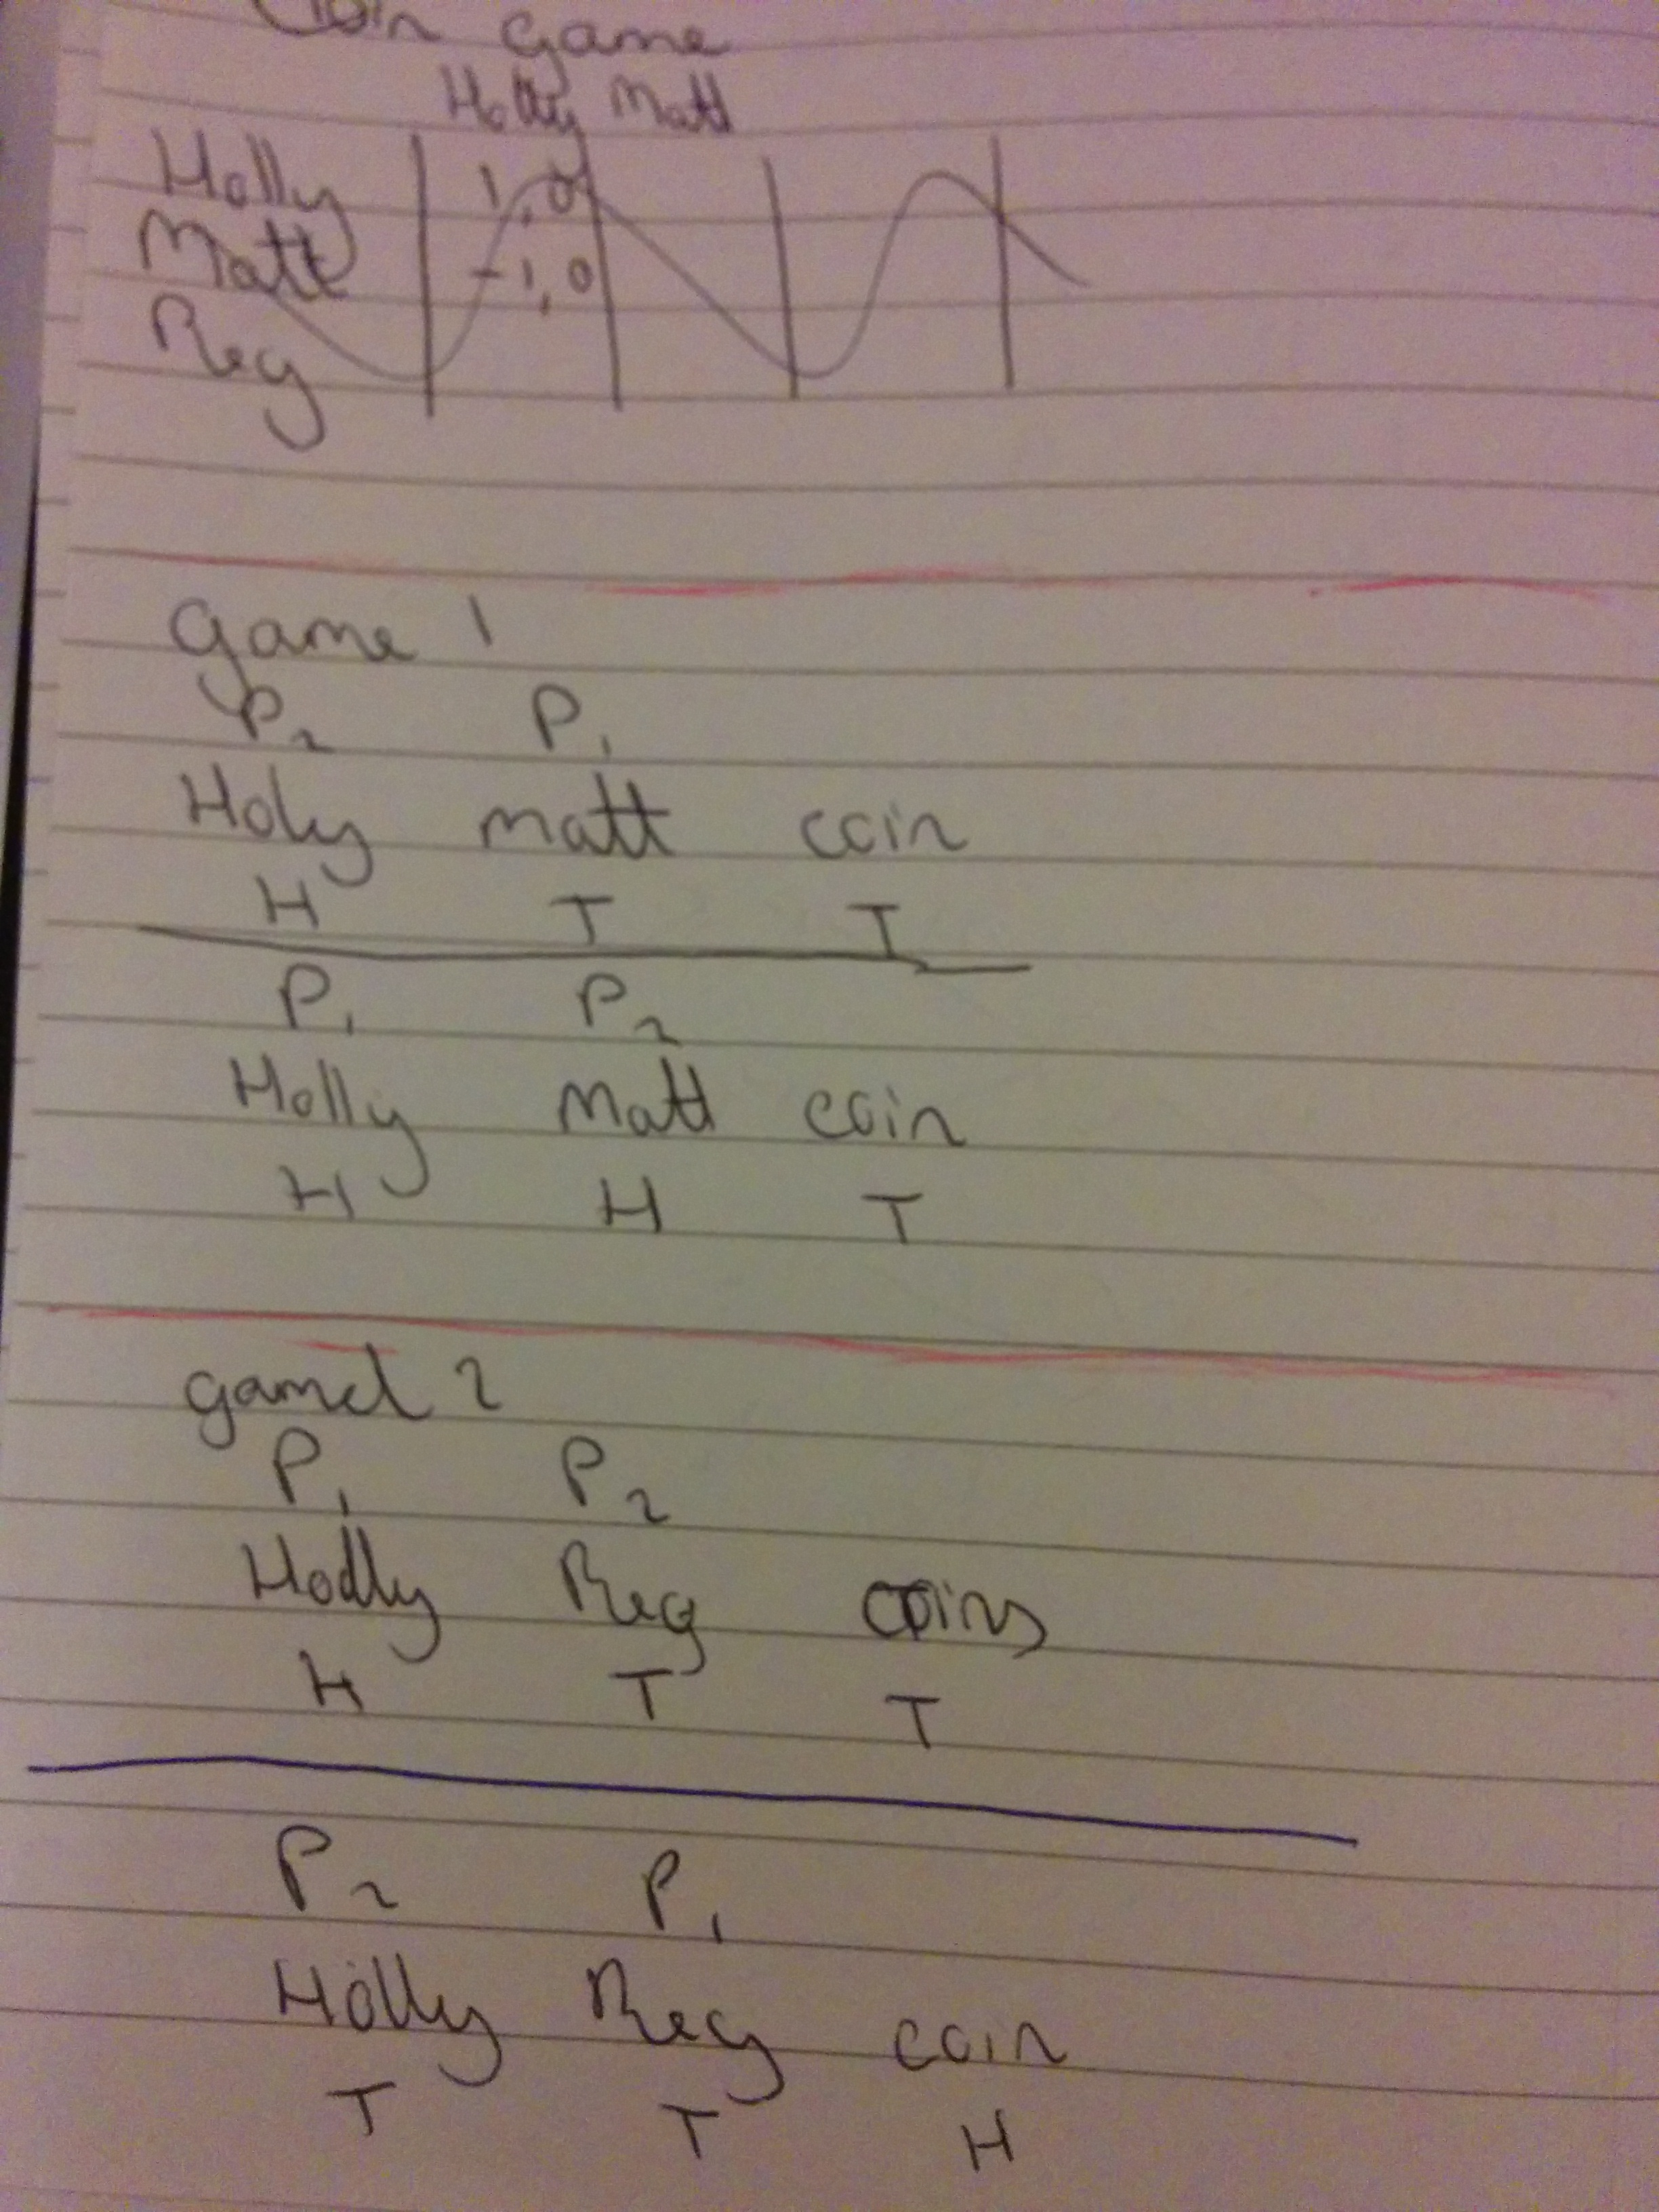 Coin game
Holly Matt
Holly 1, 0
Matt -1, 0
Reg
game 1
P2 P1
Holy matt coin
H T T
P1 P2
Holly Matt coin
H H T
game 2
P1 P2
Holly Reg coins
H T T
P2 P1
Holly Reg coin
T T H